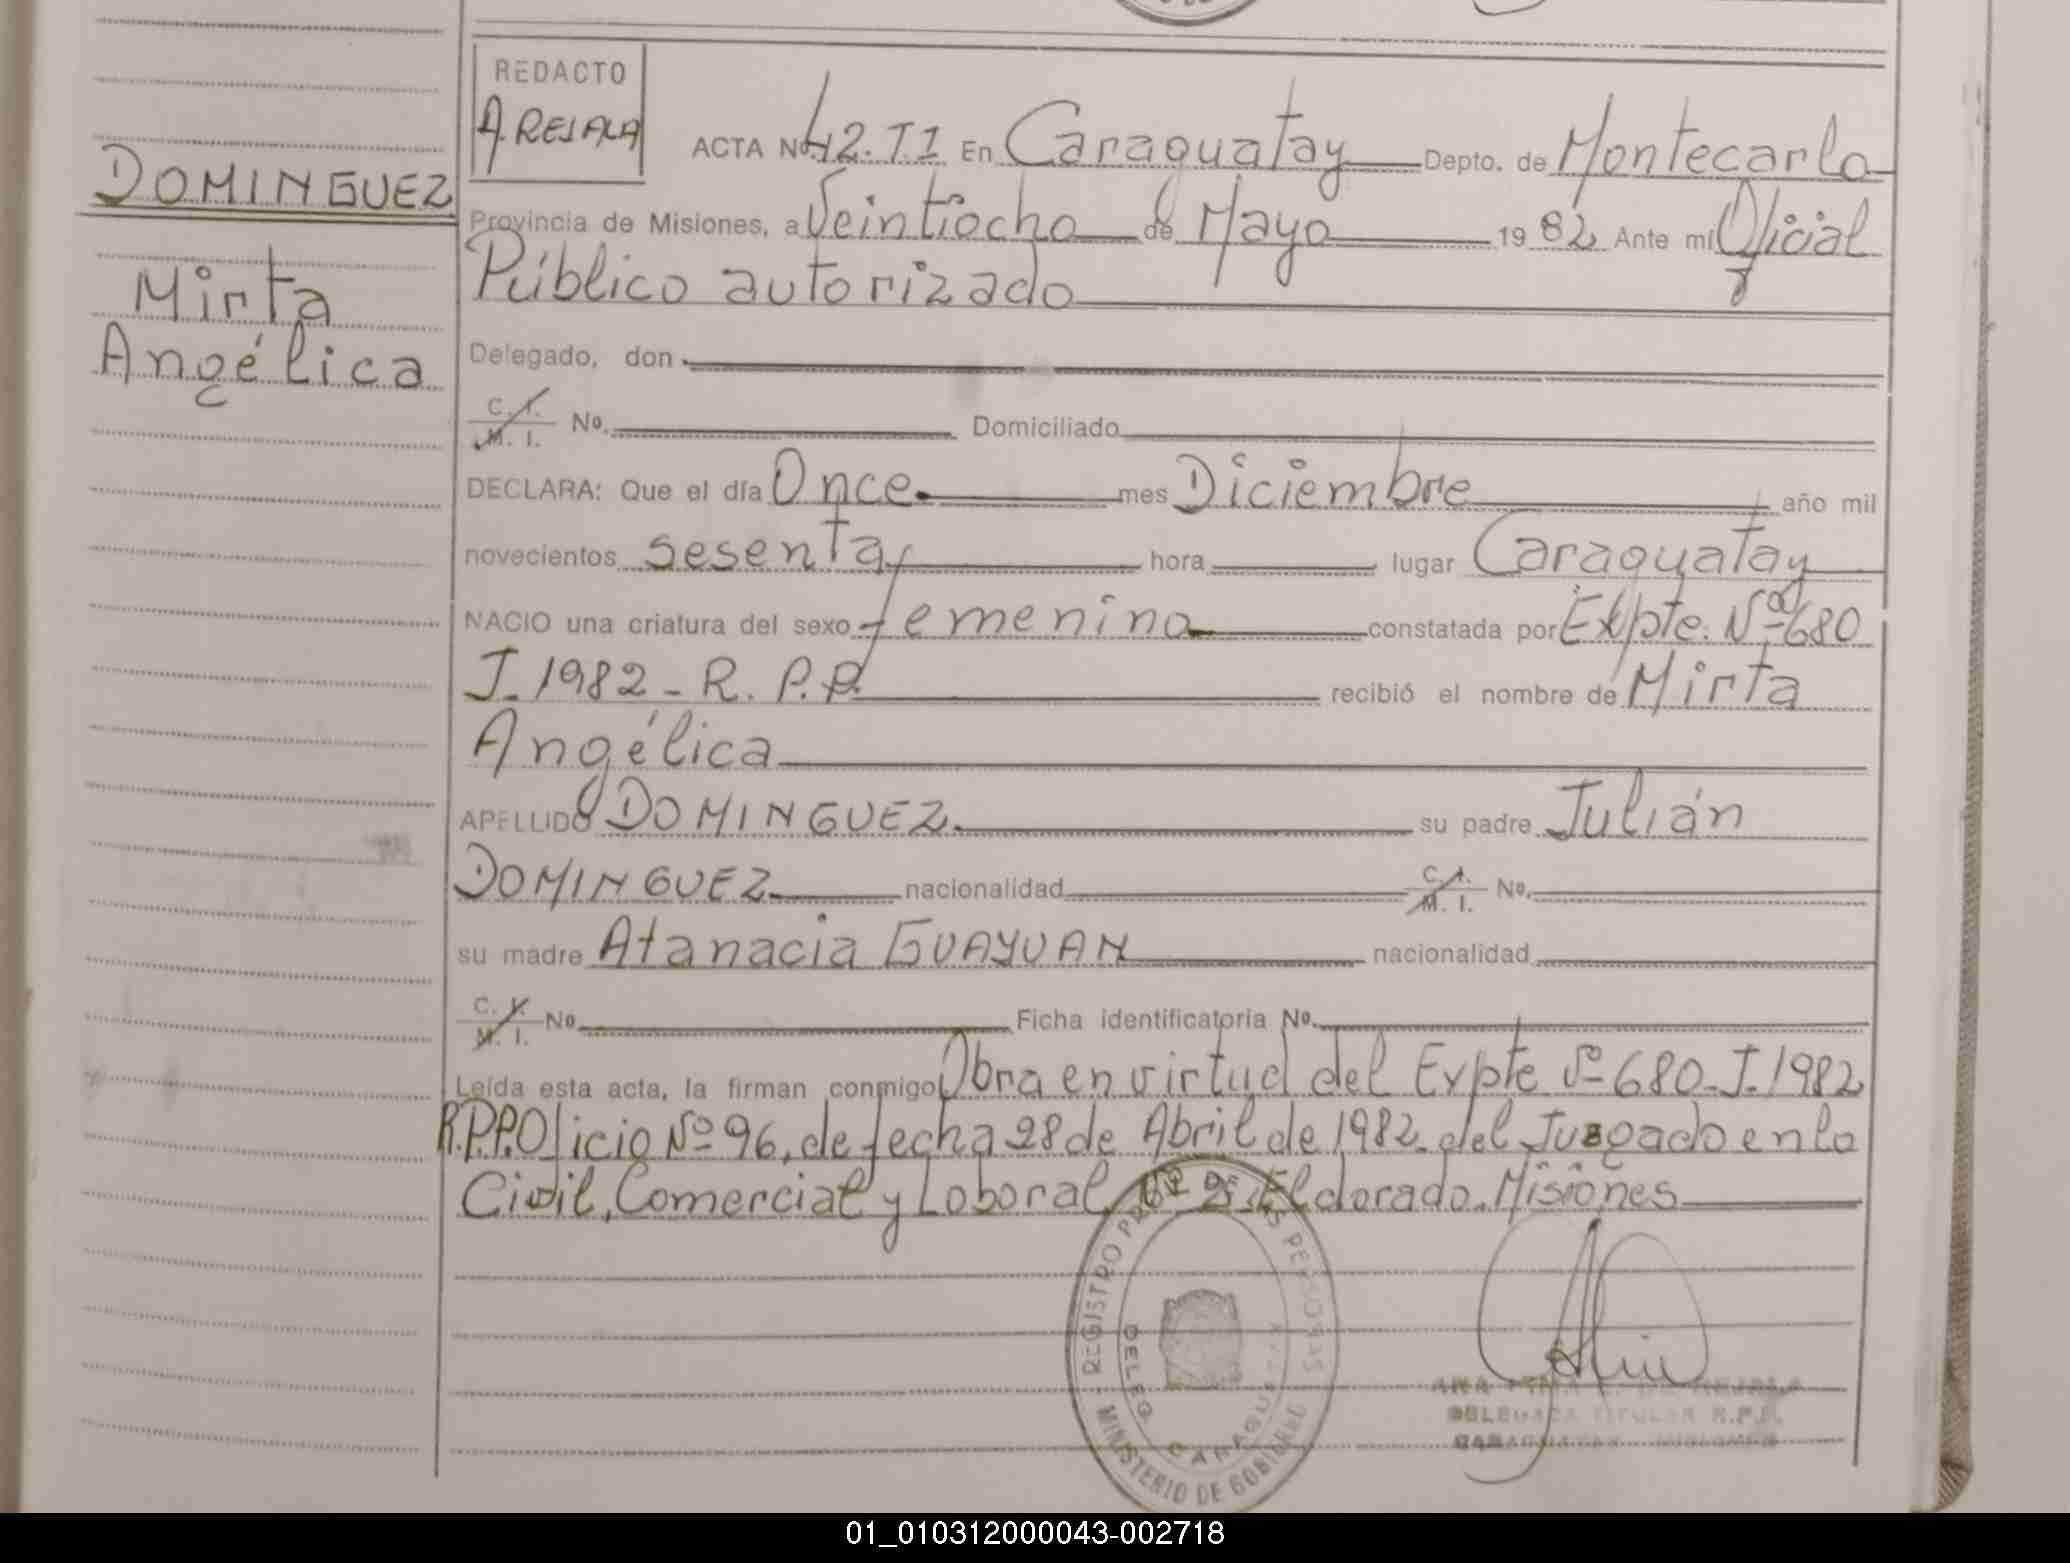 REDACTO
A. REJALA
ACTA Nº 42. T I En Caraguatay Depto. de Montecarlo
DOMINGUEZ
Provincia de Misiones, a Veintiocho de Mayo 19 82 Ante mí Oficial
Mirta
Público autorizado
Angélica
Delegado, don
C. I.
M. I. Nº. Domiciliado
DECLARA: Que el día Once mes Diciembre año mil
novecientos sesenta hora lugar Caraguatay
NACIO una criatura del sexo femenino constatada por Expte. Nº 680
J. 1982 - R. P. P. recibió el nombre de Mirta
Angélica
APELLIDO DOMINGUEZ su padre Julián
DOMINGUEZ nacionalidad C. I.
M. I. Nº.
su madre Atanacia GUAYUAN nacionalidad
C. I.
M. I. Nº Ficha identificatoria Nº.
Leída esta acta, la firman conmigo Obra en virtud del Expte Nº 680-J-1982
R.P.P. Oficio Nº 96, de fecha 28 de Abril de 1982 del Juzgado en lo
Civil, Comercial y Laboral Nº 2, Eldorado. Misiones
REGISTRO DE LAS PERSONAS
MINISTERIO DE GOBIERNO
DELEG. CARAGUATAY
DE REJALA
DELEGADA TITULAR R.P.P.
CARAGUATAY MISIONES
01_010312000043-002718